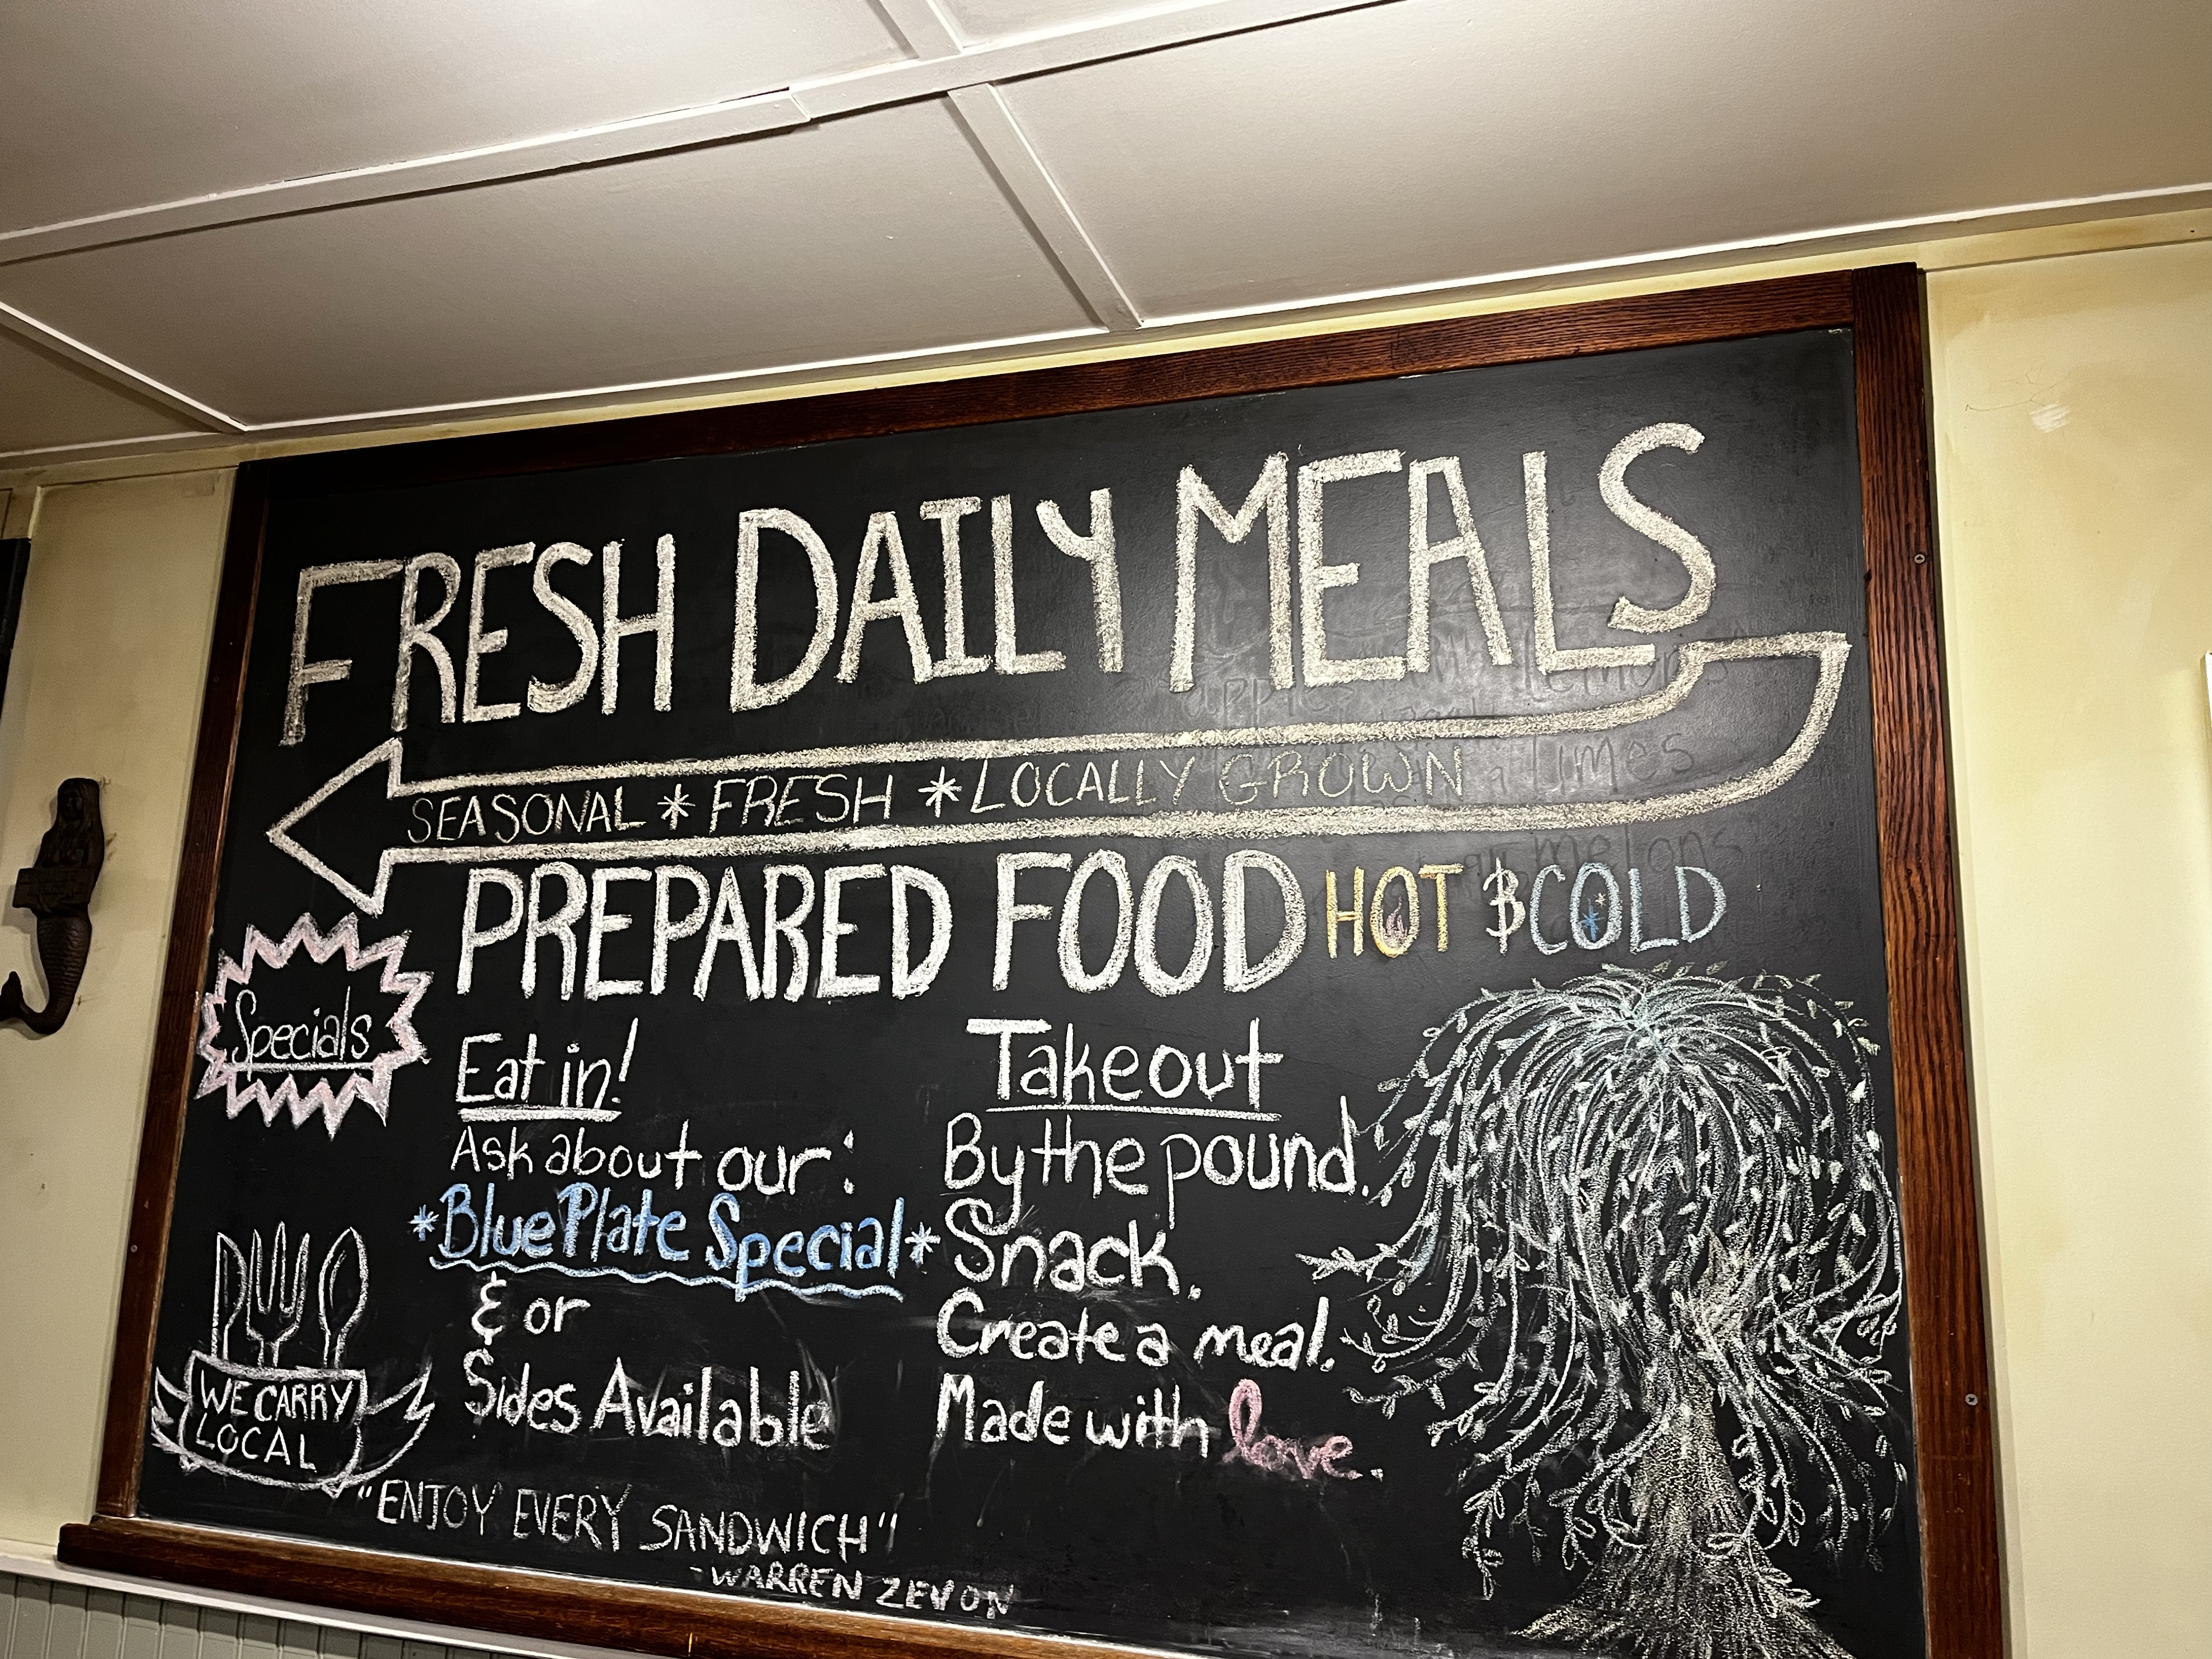 FRESH DAILY MEALS
SEASONAL * FRESH * LOCALLY GROWN
PREPARED FOOD HOT & COLD
Specials
Eat in!
Ask about our:
*Blue Plate Special*
& or
Sides Available
Takeout
By the pound.
Snack.
Create a meal.
Made with love.
WE CARRY
LOCAL
"ENJOY EVERY SANDWICH"
-WARREN ZEVON
lemons
apples
limes
melons